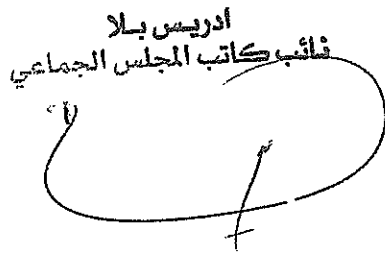 ادريس بلا
نائب كاتب المجلس الجماعي